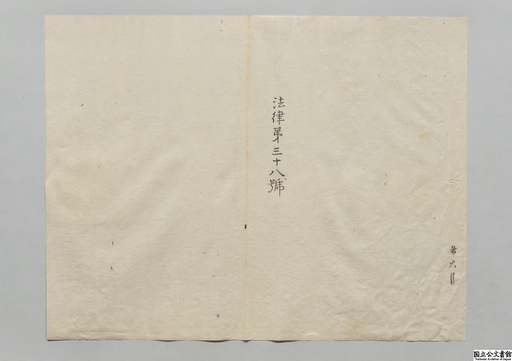 法律第三十八號
国立公文書館
National Archives of Japan